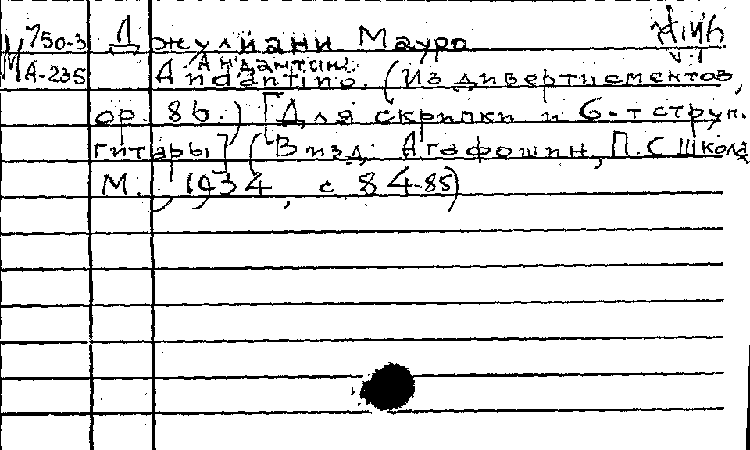 М 750-3 Д Джулиани Мауро
А-235 Андантино
Andantino. (Из дивертисментов,
op. 86.) [Для скрипки и 6-тструн.
гитары] (В изд. Агафошин, П.С. Школа
М., 1934, с 84-85)